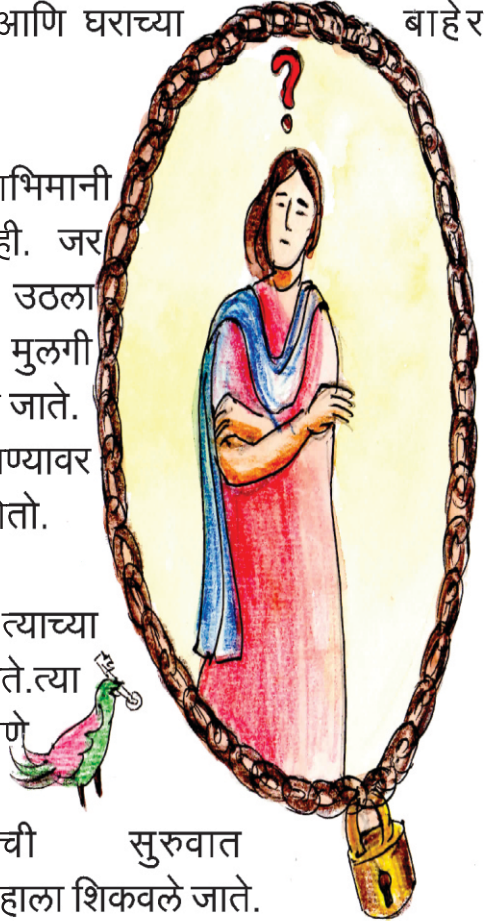 आणि घराच्या बाहेर
?
ही. जर
उठला
मुलगी
जाते.
त्याच्या
ते.त्या
णे
ची सुरुवात
हाला शिकवले जाते.